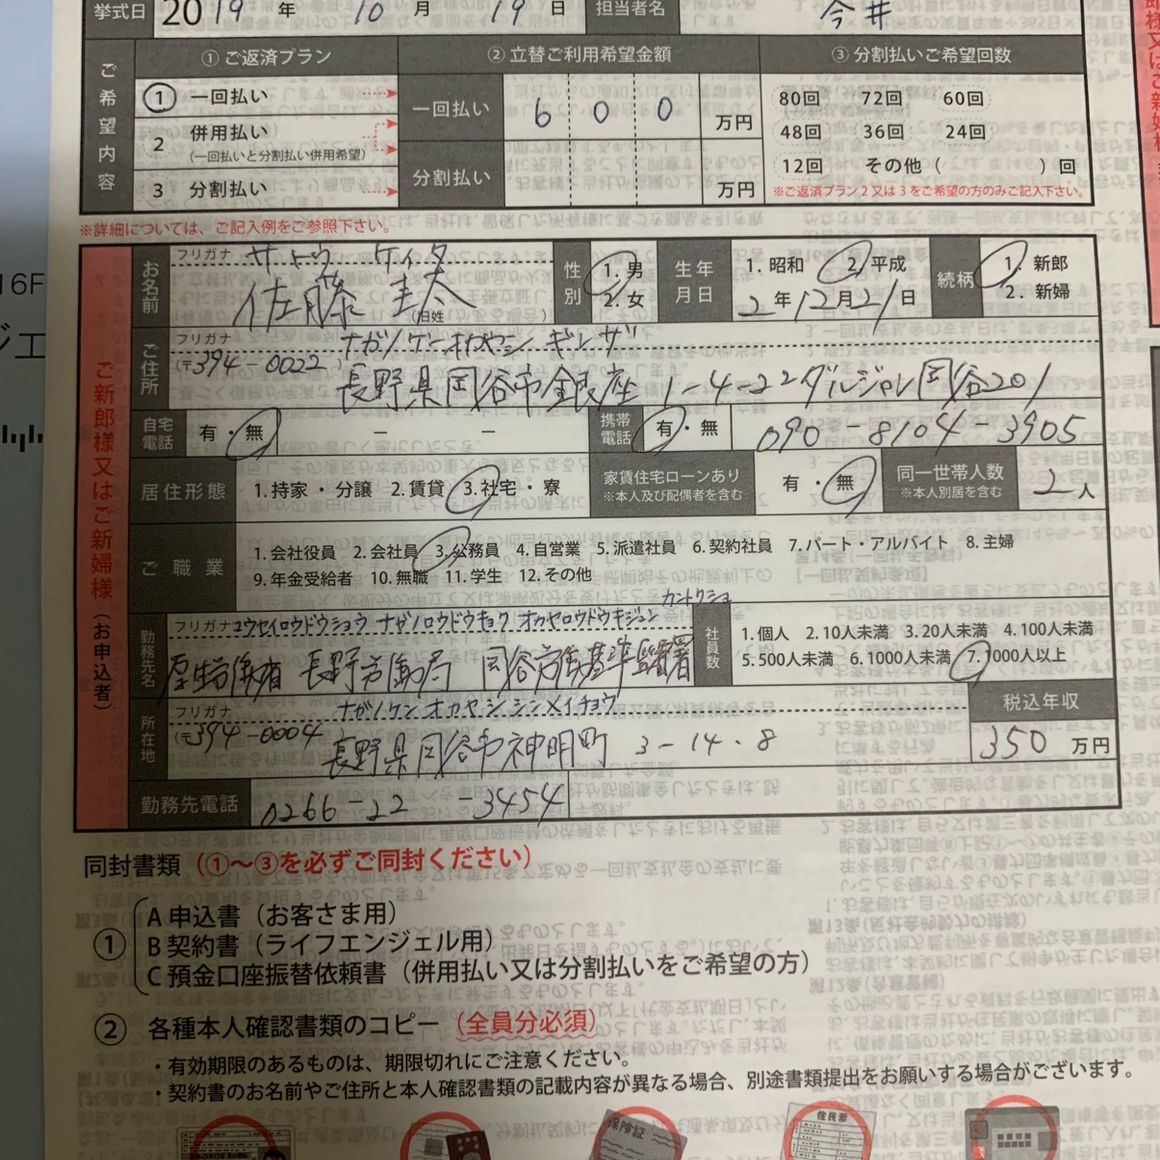 挙式日 2019 年 10 月 19 日 担当者名 今井
ご希望内容
① ご返済プラン ② 立替ご利用希望金額 ③ 分割払いご希望回数
1 一回払い
2 併用払い
(一回払いと分割払い併用希望)
3 分割払い
一回払い 6 0 0 万円
分割払い 万円
80回 72回 60回
48回 36回 24回
12回 その他 ( ) 回
※ご返済プラン 2 又は 3 をご希望の方のみご記入下さい。
※詳細については、ご記入例をご参照下さい。
ご新郎様又はご新婦様(お申込者)
お名前 フリガナ サトウ ケイタ
佐藤 圭太 (旧姓 )
性別 1. 男
2. 女
生年月日 1. 昭和 2. 平成
2 年 12 月 21 日
続柄 1. 新郎
2. 新婦
ご住所 フリガナ ナガノケンオカヤシ ギンザ
(〒394-0022) 長野県岡谷市銀座 1-4-22ダルジャン岡谷201
自宅電話 有・無 - -
携帯電話 有・無 090-8104-3905
居住形態 1. 持家・分譲 2. 賃貸 3. 社宅・寮
家賃住宅ローンあり
※本人及び配偶者を含む
有・無
同一世帯人数
※本人別居を含む
2 人
ご職業 1. 会社役員 2. 会社員 3. 公務員 4. 自営業 5. 派遣社員 6. 契約社員 7. パート・アルバイト 8. 主婦
9. 年金受給者 10. 無職 11. 学生 12. その他
カントクショ
勤務先名 フリガナ コウセイロウドウショウ ナガノロウドウキョク オカヤロウドウキジュン
厚生労働省 長野労働局 岡谷労働基準監督署
社員数 1. 個人 2. 10人未満 3. 20人未満 4. 100人未満
5. 500人未満 6. 1000人未満 7. 1000人以上
所在地 フリガナ ナガノケンオカヤシシンメイチョウ
(〒394-0004) 長野県岡谷市神明町 3-14-8
税込年収
350 万円
勤務先電話 0266-22-3454
同封書類 (①〜③を必ずご同封ください)
①
A 申込書(お客さま用)
B 契約書(ライフエンジェル用)
C 預金口座振替依頼書(併用払い又は分割払いをご希望の方)
② 各種本人確認書類のコピー (全員分必須)
・有効期限のあるものは、期限切れにご注意ください。
・契約書のお名前やご住所と本人確認書類の記載内容が異なる場合、別途書類提出をお願いする場合がございます。
保険証
住民票